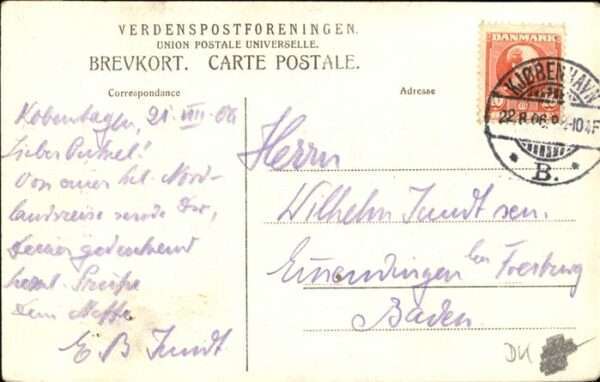 VERDENSPOSTFORENINGEN.
UNION POSTALE UNIVERSELLE.
BREVKORT. CARTE POSTALE.
Correspondance
Adresse
DANMARK
KJØBENHAVN
22.8.06
2-10 4F
B.
Kobenhagen, 21. VIII. 06
Lieber Onkel!
Von einer kl. Nord-
landreise sende Dir,
Deiner gedenkend
herzl. Grüße
Dein Neffe
E B Sundt
Herrn
Wilhelm Sundt sen.
Emmendingen bei Freiburg
Baden
DK